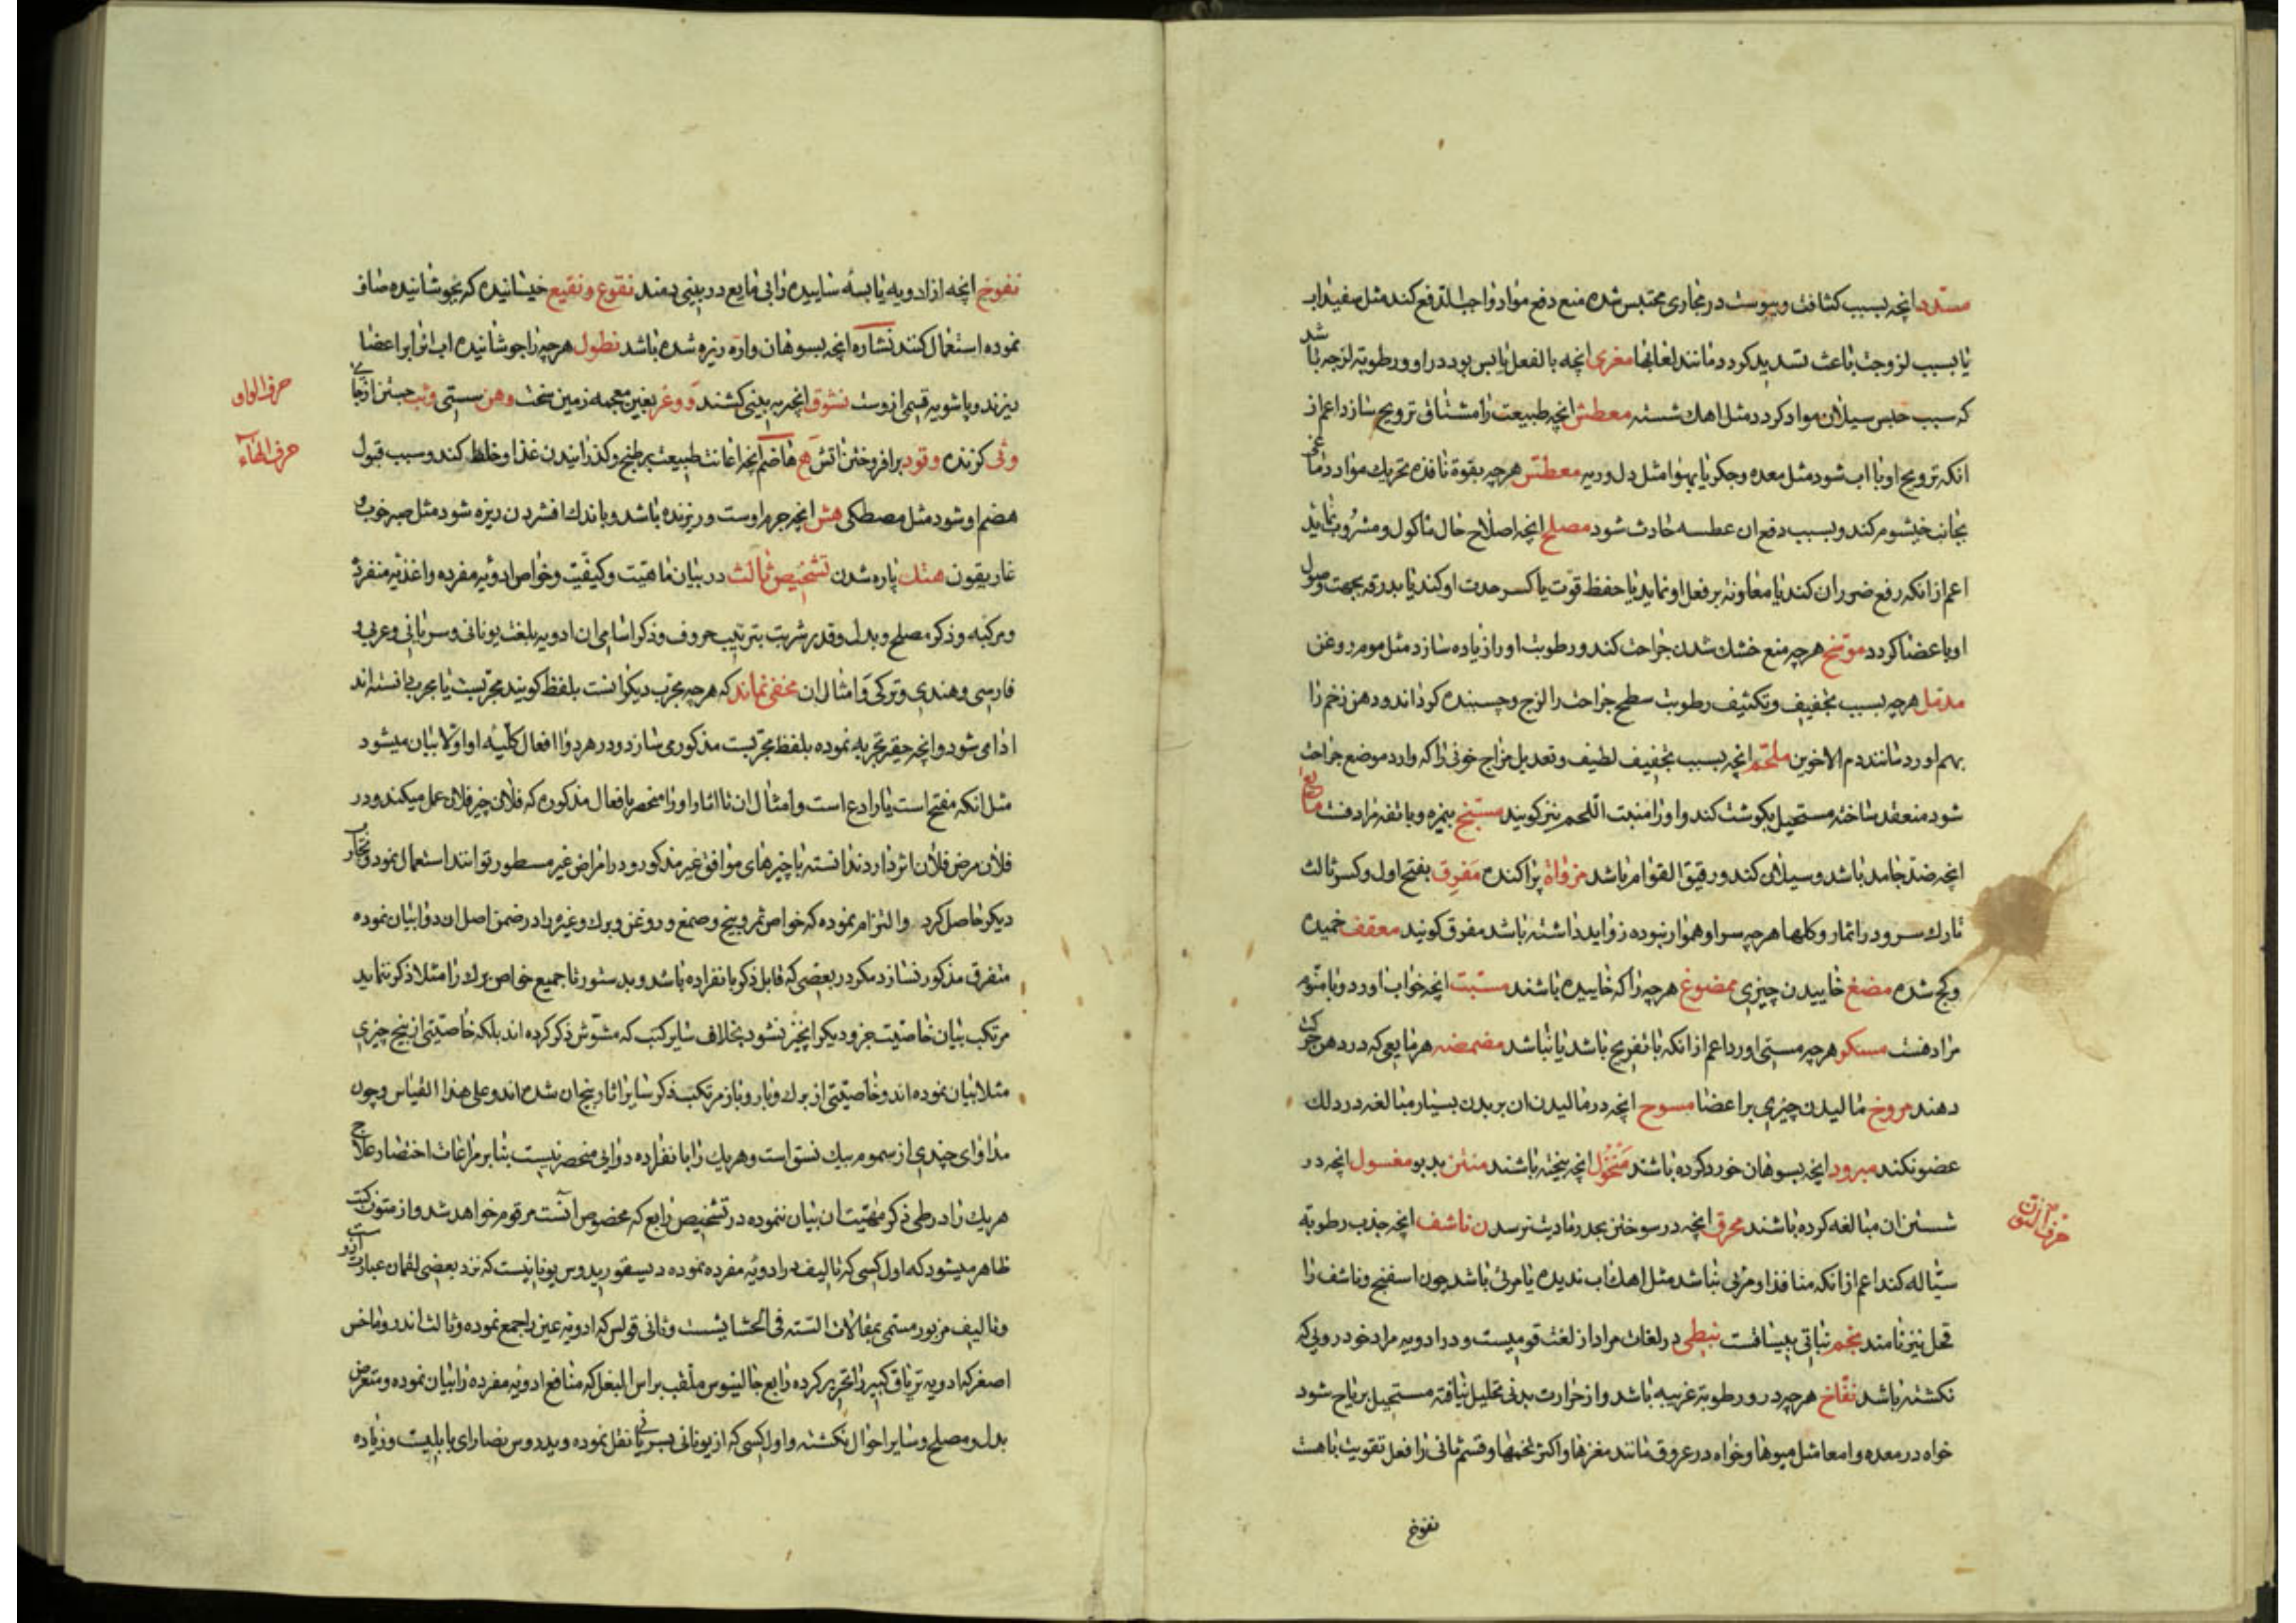 مسدد انچه بسبب کثافت ویبوست در مجاری محتبس شده منع دفع مواد واجب الدفع کند مثل سفیداب
یا بسبب لزوجت باعث تسدید کردد مانند لعابها مغری انچه بالفعل یابس بود در او ورطوبة لزجه باشد
که سبب حبس سیلان مواد کردد مثل اهک شسته معطش انچه طبیعت را مشتاق ترویح سازد اعم از
انکه ترویح او باب شود مثل معده وجکر یا بهوا مثل دل وریه معطس هرچه بقوة نافذه تحریک مواد دماغی
بجانب خیشوم کند وبسبب دفع ان عطسه حادث شود مصلح انچه اصلاح حال ماکول ومشروب نماید
اعم از انکه رفع ضرر ان کند یا معاونة بر فعل او نماید یا حفظ قوّت یا کسر حدت او کند یا بدرقه بجهت وصول
او باعضا کردد موسّخ هرچه منع خشک شدن جراحت کند ورطوبت او را زیاده سازد مثل موم روغن
مدمل هرچه بسبب تجفیف وتکثیف رطوبت سطح جراحت را لزج وچسبنده کرداند ودهن زخم را
بهم اورد مانند دم الاخوین ملتحم انچه بسبب تجفیف لطیف وتعدیل مزاج خونی را که وارد موضع جراحت
شود منعقد ساخته مستحیل بکوشت کند واو را منبت اللحم نیز کویند مسبخ بیمزه وباتفه مرادفست مایع
انچه ضدّ جامد باشد وسیلان کند ورقیق القوام باشد مزواة پراکنده مفرق بفتح اول وکسر ثالث
تارک سر ودر اثمار وکلها هرچه سر او هموار نبوده زواید داشته باشد مفرق کویند معقف خمیده
وکج شده مضغ خاییدن چیزی ممضوغ هرچه را که خاییده باشند مسبت انچه خواب اورد وبا منوّم
مرادفست مسکر هرچه مستی اورد اعم از انکه با تفریح باشد یا نباشد مضمضه هر مایعی که در دهن حرکت
دهند مروخ مالیدن چیزی بر اعضا مسوح انچه در مالیدن ان بر بدن بسیار مبالغه در دلک
عضو نکند مبرود انچه بسوهان خورد کرده باشند منخول انچه بیخته باشند منتن بدبو مغسول انچه در
شستن ان مبالغه کرده باشند محرق انچه در سوختن بحد رمادیت نرسد ن ناشف انچه جذب رطوبة
سیّاله کند اعم از انکه منافذ او مرئی نباشد مثل اهک اب ندیده یا مرئی باشد چون اسفنج وناشف را
قحل نیز نامند نجم نباتی بیساقست نبطی در لغات مراد از لغت قومیست ودر ادویه مراد خودرویی که
نکشته باشد نفّاخ هرچه در ورطوبة غریبه باشد واز حرارت بدنی تحلیل نیافته مستحیل بریاح شود
خواه در معده وامعا مثل میوها وخواه در عروق مانند مغزها واکثر تخمها وقسم ثانی را فعل تقویت باهست
حرف النون
نفوخ
نفوخ انچه از ادویه یابسهٔ ساییده را بی مایع در بینی دمند نقوع ونقیع خیسانیده که نجوشانیده صاف
نموده استعمال کنند نشاره انچه بسوهان واره ریزه شده باشد نطول هرچه را جوشانیده اب انرا بر اعضا
ریزند وپاشویه قسمی از وست نشوق انچه به بینی کشند و وغر بغین معجمه زمین سخت وهن سستی وثب جستن از جائی
وثی کزنده وقود برافروختن اتش ه هاضم انچه اعانت طبیعت بر طبخ وکذرانیدن غذا وخلط کند وسبب قبول
هضم او شود مثل مصطکی هش انچه جرم او سست وریزنده باشد وباندک افشردن ریزه شود مثل صبر خوب و
غاریقون هتک پاره شدن تشخیص ثالث در بیان ماهیّت وکیفیّت وخواص ادویه مفرده واغذیه منفرده
ومرکبه وذکر مصلح وبدل وقدر شربت بترتیب حروف وذکر اسامی ان ادویه بلغت یونانی وسریانی وعربی و
فارسی وهندی وترکی وامثال ان مخفی نماند که هرچه مجرّب دیکرانست بلفظ کویند مجرّبست یا مجرب دانسته اند
ادا می شود وانچه حقیر تجربه نموده بلفظ مجرّبست مذکور می سازد ودر هر دوا افعال کلّیهٔ او اولا بیان میشود
مثل انکه مفتح است یا رادع است وامثال ان تا اثار او را منحصر بافعال مذکوره که فلان چیز فلان عمل میکند ودر
فلان مرض فلان اثر دارد ندانسته با چیزهای موافق غیر مذکور ودر امراض غیر مسطور توانند استعمال نمود وتجارب
دیکر حاصل کرد والتزام نموده که خواص ثمر وبیخ وصمغ وروغن وبرک وغیره را در ضمن اصل ان دوا بیان نموده
متفرق مذکور نسازد مکر در بعضی که قابل ذکر بانفراده باشد وبدستور تا جمیع خواص برک را مثلا ذکر ننماید
مرتکب بیان خاصیّت جزو دیکر ان چیز نشود بخلاف سایر کتب که مشوّش ذکر کرده اند بلکه خاصیّتی از بیخ چیزی
مثلا بیان نموده اند وخاصیّتی از برک وبار وباز مرتکب ذکر سایر اثار بیخ ان شده اند وعلی هذا القیاس وچون
مداوای چندی از سموم بیک نسق است وهریک را بانفراده دوایی منحصر نیست بنابر مراعات اختصار علاج
هریک را در طی ذکر مهیّت ان بیان ننموده در تشخیص رابع که مخصوص انست مرقوم خواهد شد واز متون کتب
ظاهر میشود که اول کسی که تالیف در ادویهٔ مفرده نموده دیسقوریدوس یونانیست که نزد بعضی لقمان عبارت از وست
وتالیف مزبور مسمی بمقالات السّته فی الحشایشست وثانی قولس که ادویه عین را جمع نموده وثالث اندروماخس
اصغر که ادویه تریاق کبیر را تحریر کرده رابع جالینوس ملقب براس البغل که منافع ادویه مفرده را بیان نموده ومتعرض
بدل ومصلح وسایر احوال نکشته واول کسی که از یونانی بسریانی نقل نموده ویدروس نصارای بابلیست وزیاده
حرف الواو
حرف الهاء